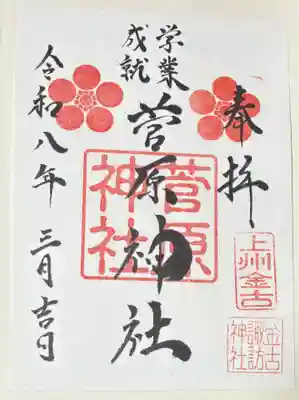 奉拝
上州金古
金古
諏訪
神社
学業
成就
菅原神社
菅原
神社
令和八年 三月吉日